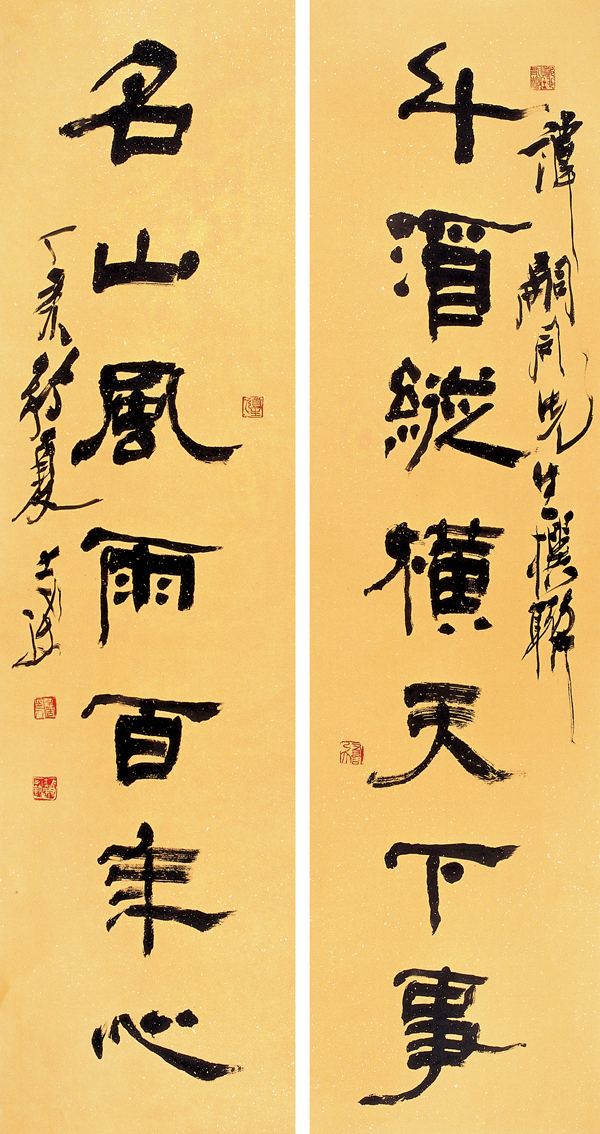 譚嗣同先生撰聯
斗酒縱橫天下事
名山風雨百年心
丁亥初夏